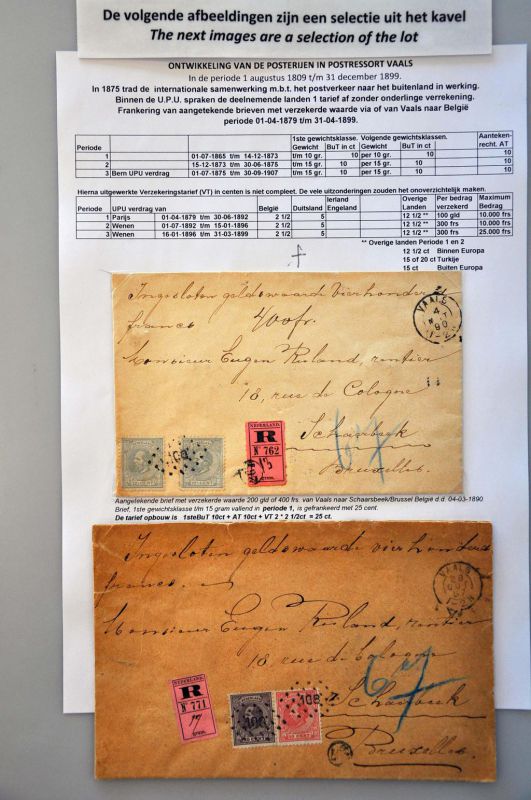 De volgende afbeeldingen zijn een selectie uit het kavel
The next images are a selection of the lot
ONTWIKKELING VAN DE POSTERIJEN IN POSTRESSORT VAALS
In de periode 1 augustus 1809 t/m 31 december 1899.
In 1875 trad de internationale samenwerking m.b.t. het postverkeer naar het buitenland in werking.
Binnen de U.P.U. spraken de deelnemende landen 1 tarief af zonder onderlinge verrekening.
Frankering van aangetekende brieven met verzekerde waarde via of van Vaals naar België
periode 01-04-1879 t/m 31-04-1899.
Periode 1ste gewichtsklasse. Volgende gewichtsklassen. Aanteken-
Gewicht BuT in ct Gewicht BuT in ct recht. AT
1 01-07-1865 t/m 14-12-1873 t/m 10 gr. 10 per 10 gr. 10 10
2 15-12-1873 t/m 30-06-1875 t/m 15 gr. 10 per 15 gr. 10 10
3 Bern UPU verdrag 01-07-1875 t/m 30-09-1907 t/m 15 gr. 10 per 15 gr. 10 10
Hierna uitgewerkte Verzekeringstarief (VT) in centen is niet compleet. De vele uitzonderingen zouden het onoverzichtelijk maken.
Periode UPU verdrag van België Duitsland Ierland Engeland Overige Landen Per bedrag verzekerd Maximum Bedrag
1 Parijs 01-04-1879 t/m 30-06-1892 2 1/2 5 12 1/2 ** 100 gld 10.000 frs
2 Wenen 01-07-1892 t/m 15-01-1896 2 1/2 5 12 1/2 ** 300 frs 10.000 frs
3 Wenen 16-01-1896 t/m 31-03-1899 2 1/2 5 12 1/2 ** 300 frs 25.000 frs
** Overige landen Periode 1 en 2
12 1/2 ct Binnen Europa
15 of 20 ct Turkije
15 ct Buiten Europa
Ingesloten geldswaarde vierhonderd
francs
400fr.
VAALS
4
90
Monsieur Eugen Ruland, rentier
18, rue de Cologne
Schaarbeek
Bruxelles
67
NEDERLAND.
R
Nº 762
108
Aangetekende brief met verzekerde waarde 200 gld of 400 frs. van Vaals naar Schaarsbeek/Brussel België d.d. 04-03-1890
Brief, 1ste gewichtsklasse t/m 15 gram vallend in periode 1, is gefrankeerd met 25 cent.
De tarief opbouw is 1steBuT 10ct + AT 10ct + VT 2 * 2 1/2ct = 25 ct.
Ingesloten geldswaarde vier honderd
francs
VAALS
Monsieur Eugen Ruland, rentier
18, rue de Cologne
Schaarbeek
Bruxelles
67
NEDERLAND.
R
Nº 771
108
108